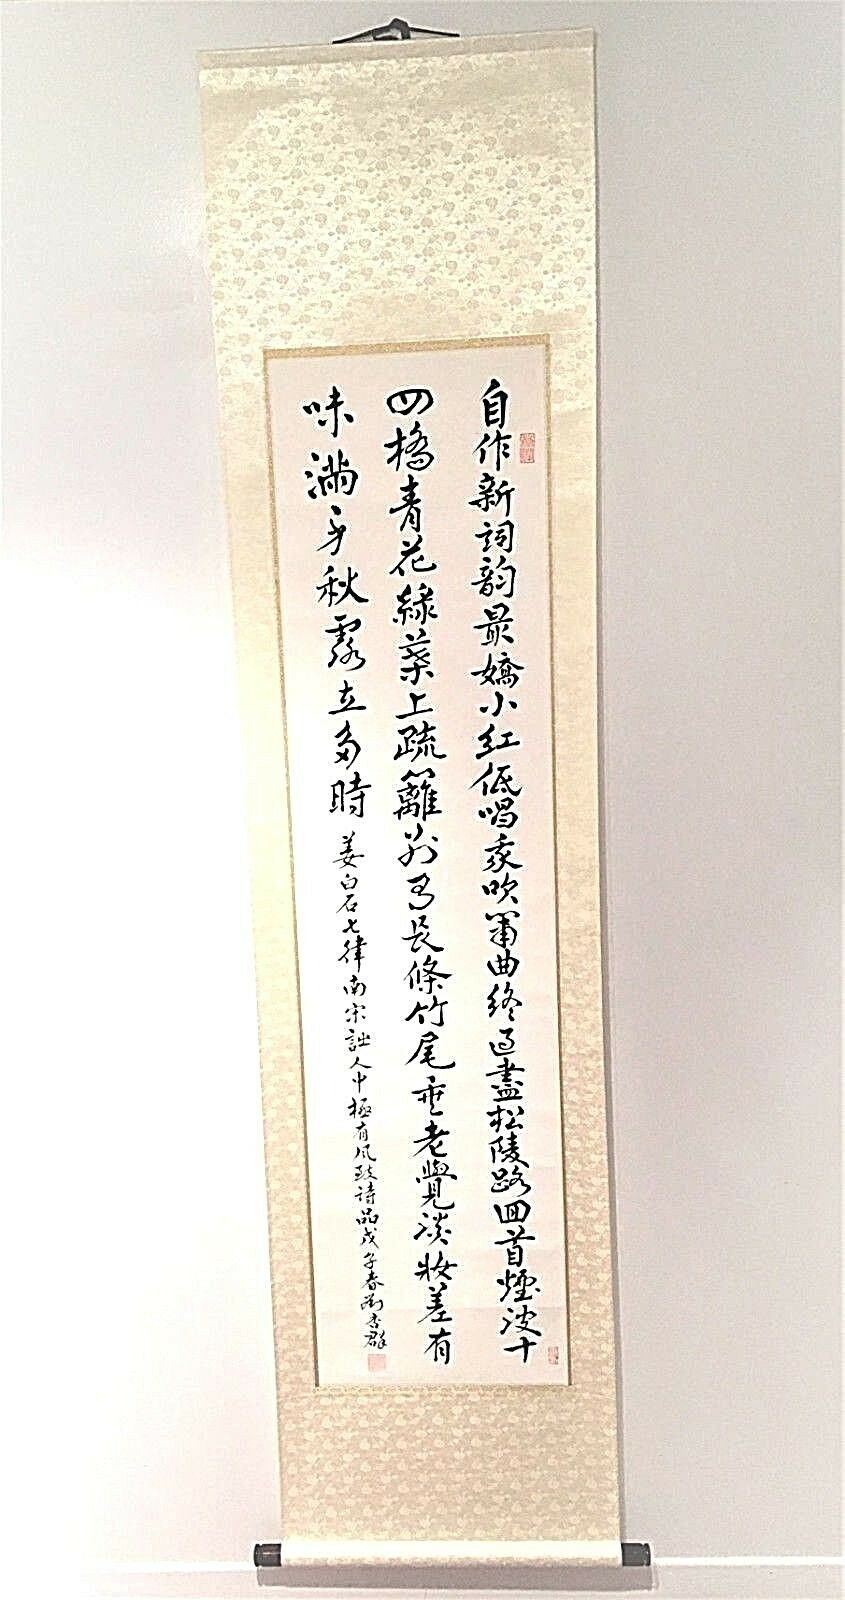 自作新詞韵最嬌小紅低唱我吹簫曲終過盡松陵路回首煙波十
四橋青花綠葉上疏籬別有長條竹尾垂老覺淡妝差有
味滿身秋露立多時
姜白石七律南宋詞人中極有風致詩品戊子春劉杏群